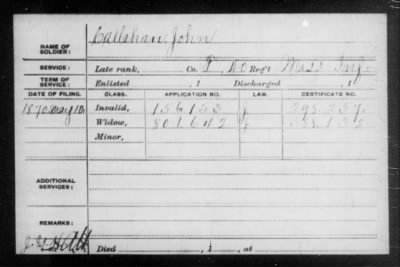 NAME OF SOLDIER: Callahan, John
SERVICE: Late rank, Co. I, 40 Reg't Mass Inf.
TERM OF SERVICE: Enlisted , 1 Discharged , 1
DATE OF FILING. CLASS. APPLICATION NO. LAW. CERTIFICATE NO.
1870 May 10 Invalid, 156.142
Widow, 801.642
Minor,
ADDITIONAL SERVICES:
REMARKS:
Died , 1 , at